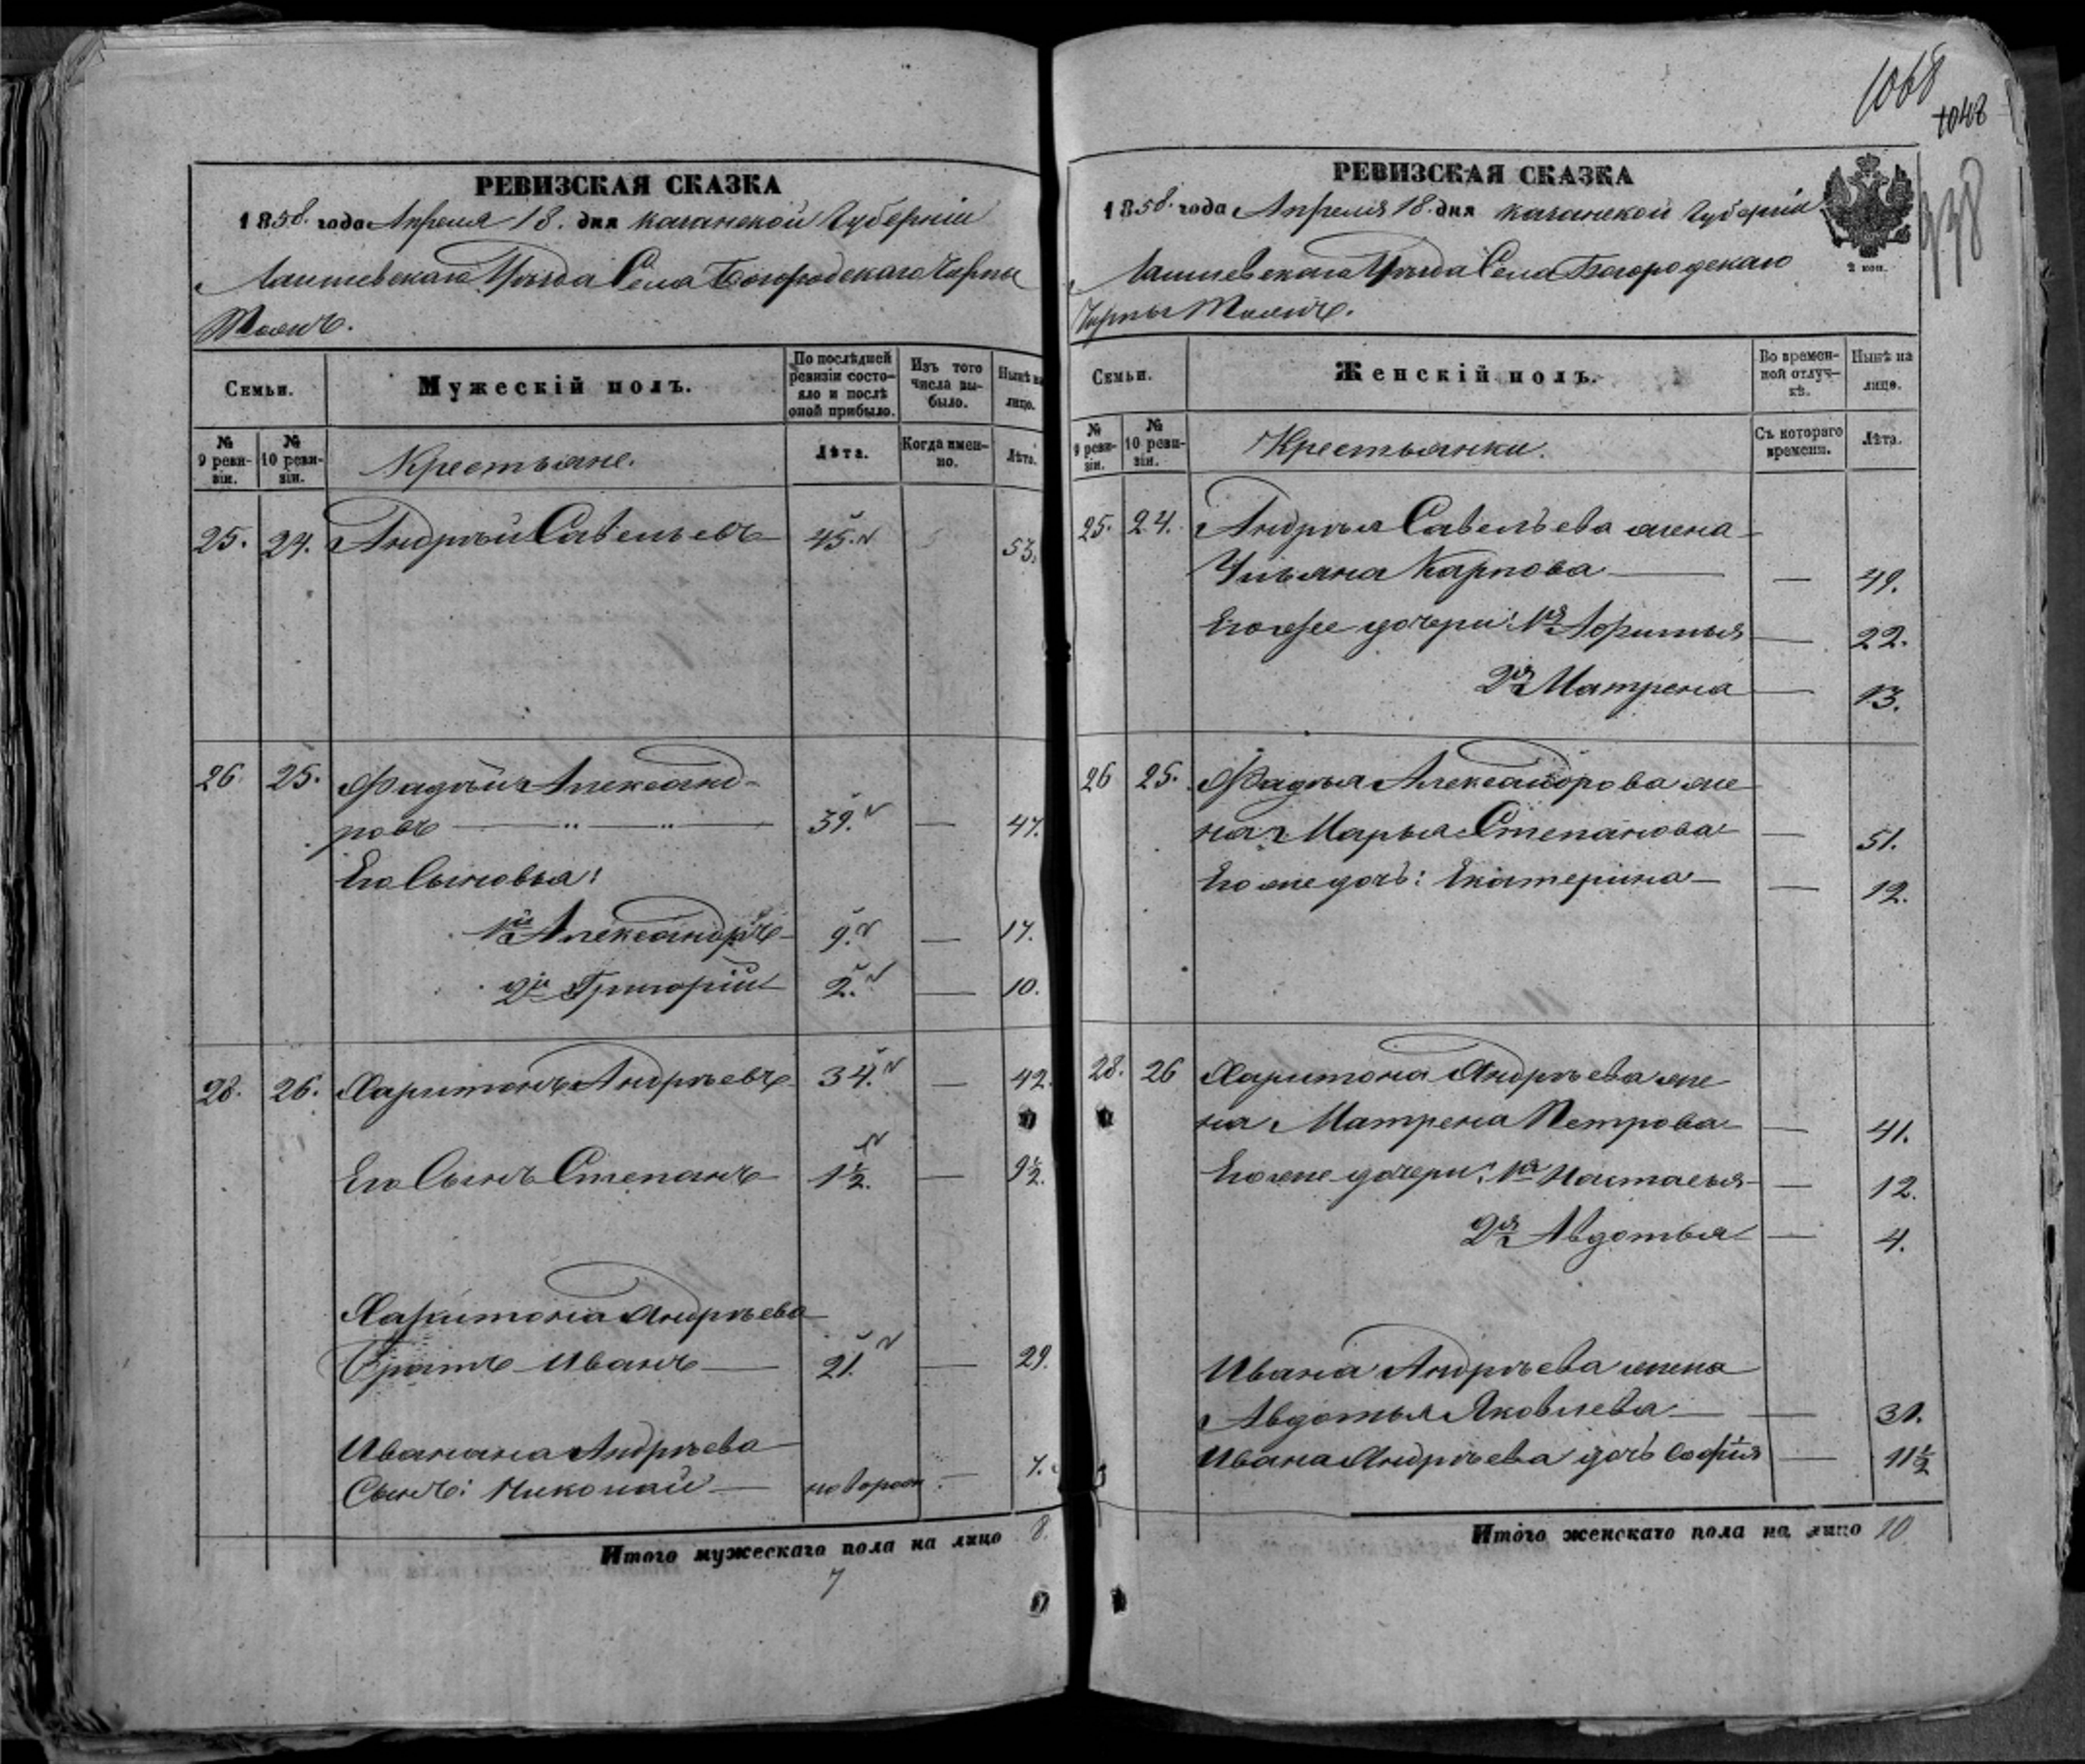 1068
1048
938
РЕВИЗСКАЯ СКАЗКА
1858. года Апреля 18. дня казанской Губерніи
Лаишевскаго Уѣзда Села Богородскаго Чирпы
Тожъ.
Семьи.
Мужескій полъ.
По послѣдней ревизіи состояло и послѣ оной прибыло.
Изъ того числа выбыло.
Нынѣ на лицо.
№ 9 ревизіи.
№ 10 ревизіи.
Крестьяне.
Лѣта.
Когда именно.
Лѣта.
25. 24. Андрѣй Савельевъ 45. 53.
26. 25. Фадѣй Александ-
ровъ — " — " — 39. — 47.
Его Сыновья:
1й Александръ 9. — 17.
2й Григорій 2. — 10.
28. 26. Харитонъ Андрѣевъ 34. — 42.
Его Сынъ Степанъ 1½. — 9½.
Харитона Андрѣева
Братъ Иванъ — 21. — 29.
Иванана Андрѣева
Сынъ: Николай — новорож — 7.
Итого мужескаго пола на лицо 8.
7
РЕВИЗСКАЯ СКАЗКА
1858. года Апреля 18. дня казанской Губерніи
2 коп.
Лаишевскаго Уѣзда Села Богородскаго
Чирпы Тожъ.
Семьи.
Женскій полъ.
Во временной отлучкѣ.
Нынѣ на лицо.
№ 9 ревизіи.
№ 10 ревизіи.
Крестьянки.
Съ котораго времени.
Лѣта.
25. 24. Андрѣя Савельева жена
Ульяна Карпова — — 49.
Его же дочери: 1я Афимья — 22.
2я Матрена — 13.
26 25. Фадѣя Александрова же
на Марья Степанова — 51.
Его же дочь: Екатерина — 12.
28. 26 Харитона Андрѣева же
на Матрена Петрова — 41.
Его же дочери: 1я Настасья — 12.
2я Авдотья — 4.
Ивана Андрѣева жена
Авдотья Яковлева — — 31.
Ивана Андрѣева дочь Софія — 11½
Итого женскаго пола на лицо 10.